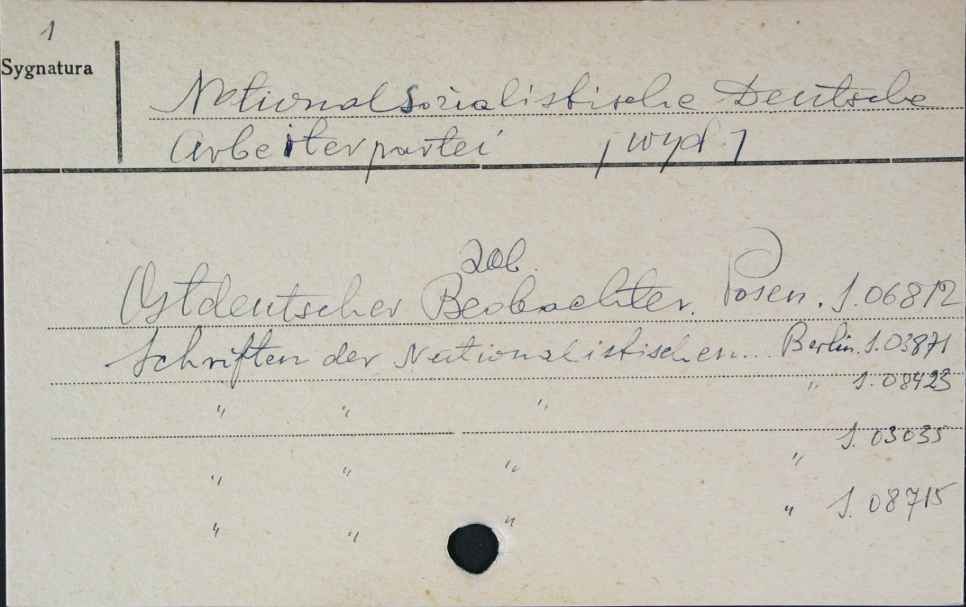 1
Sygnatura
Nationalsozialistische Deutsche
Arbeiterpartei /wyd./
zob.
Ostdeutscher Beobachter. Posen. S.06812
Schriften der Nationalistischen... Berlin. S.03871
" " " " S.08423
" " " " S.03035
" " " " S.08715